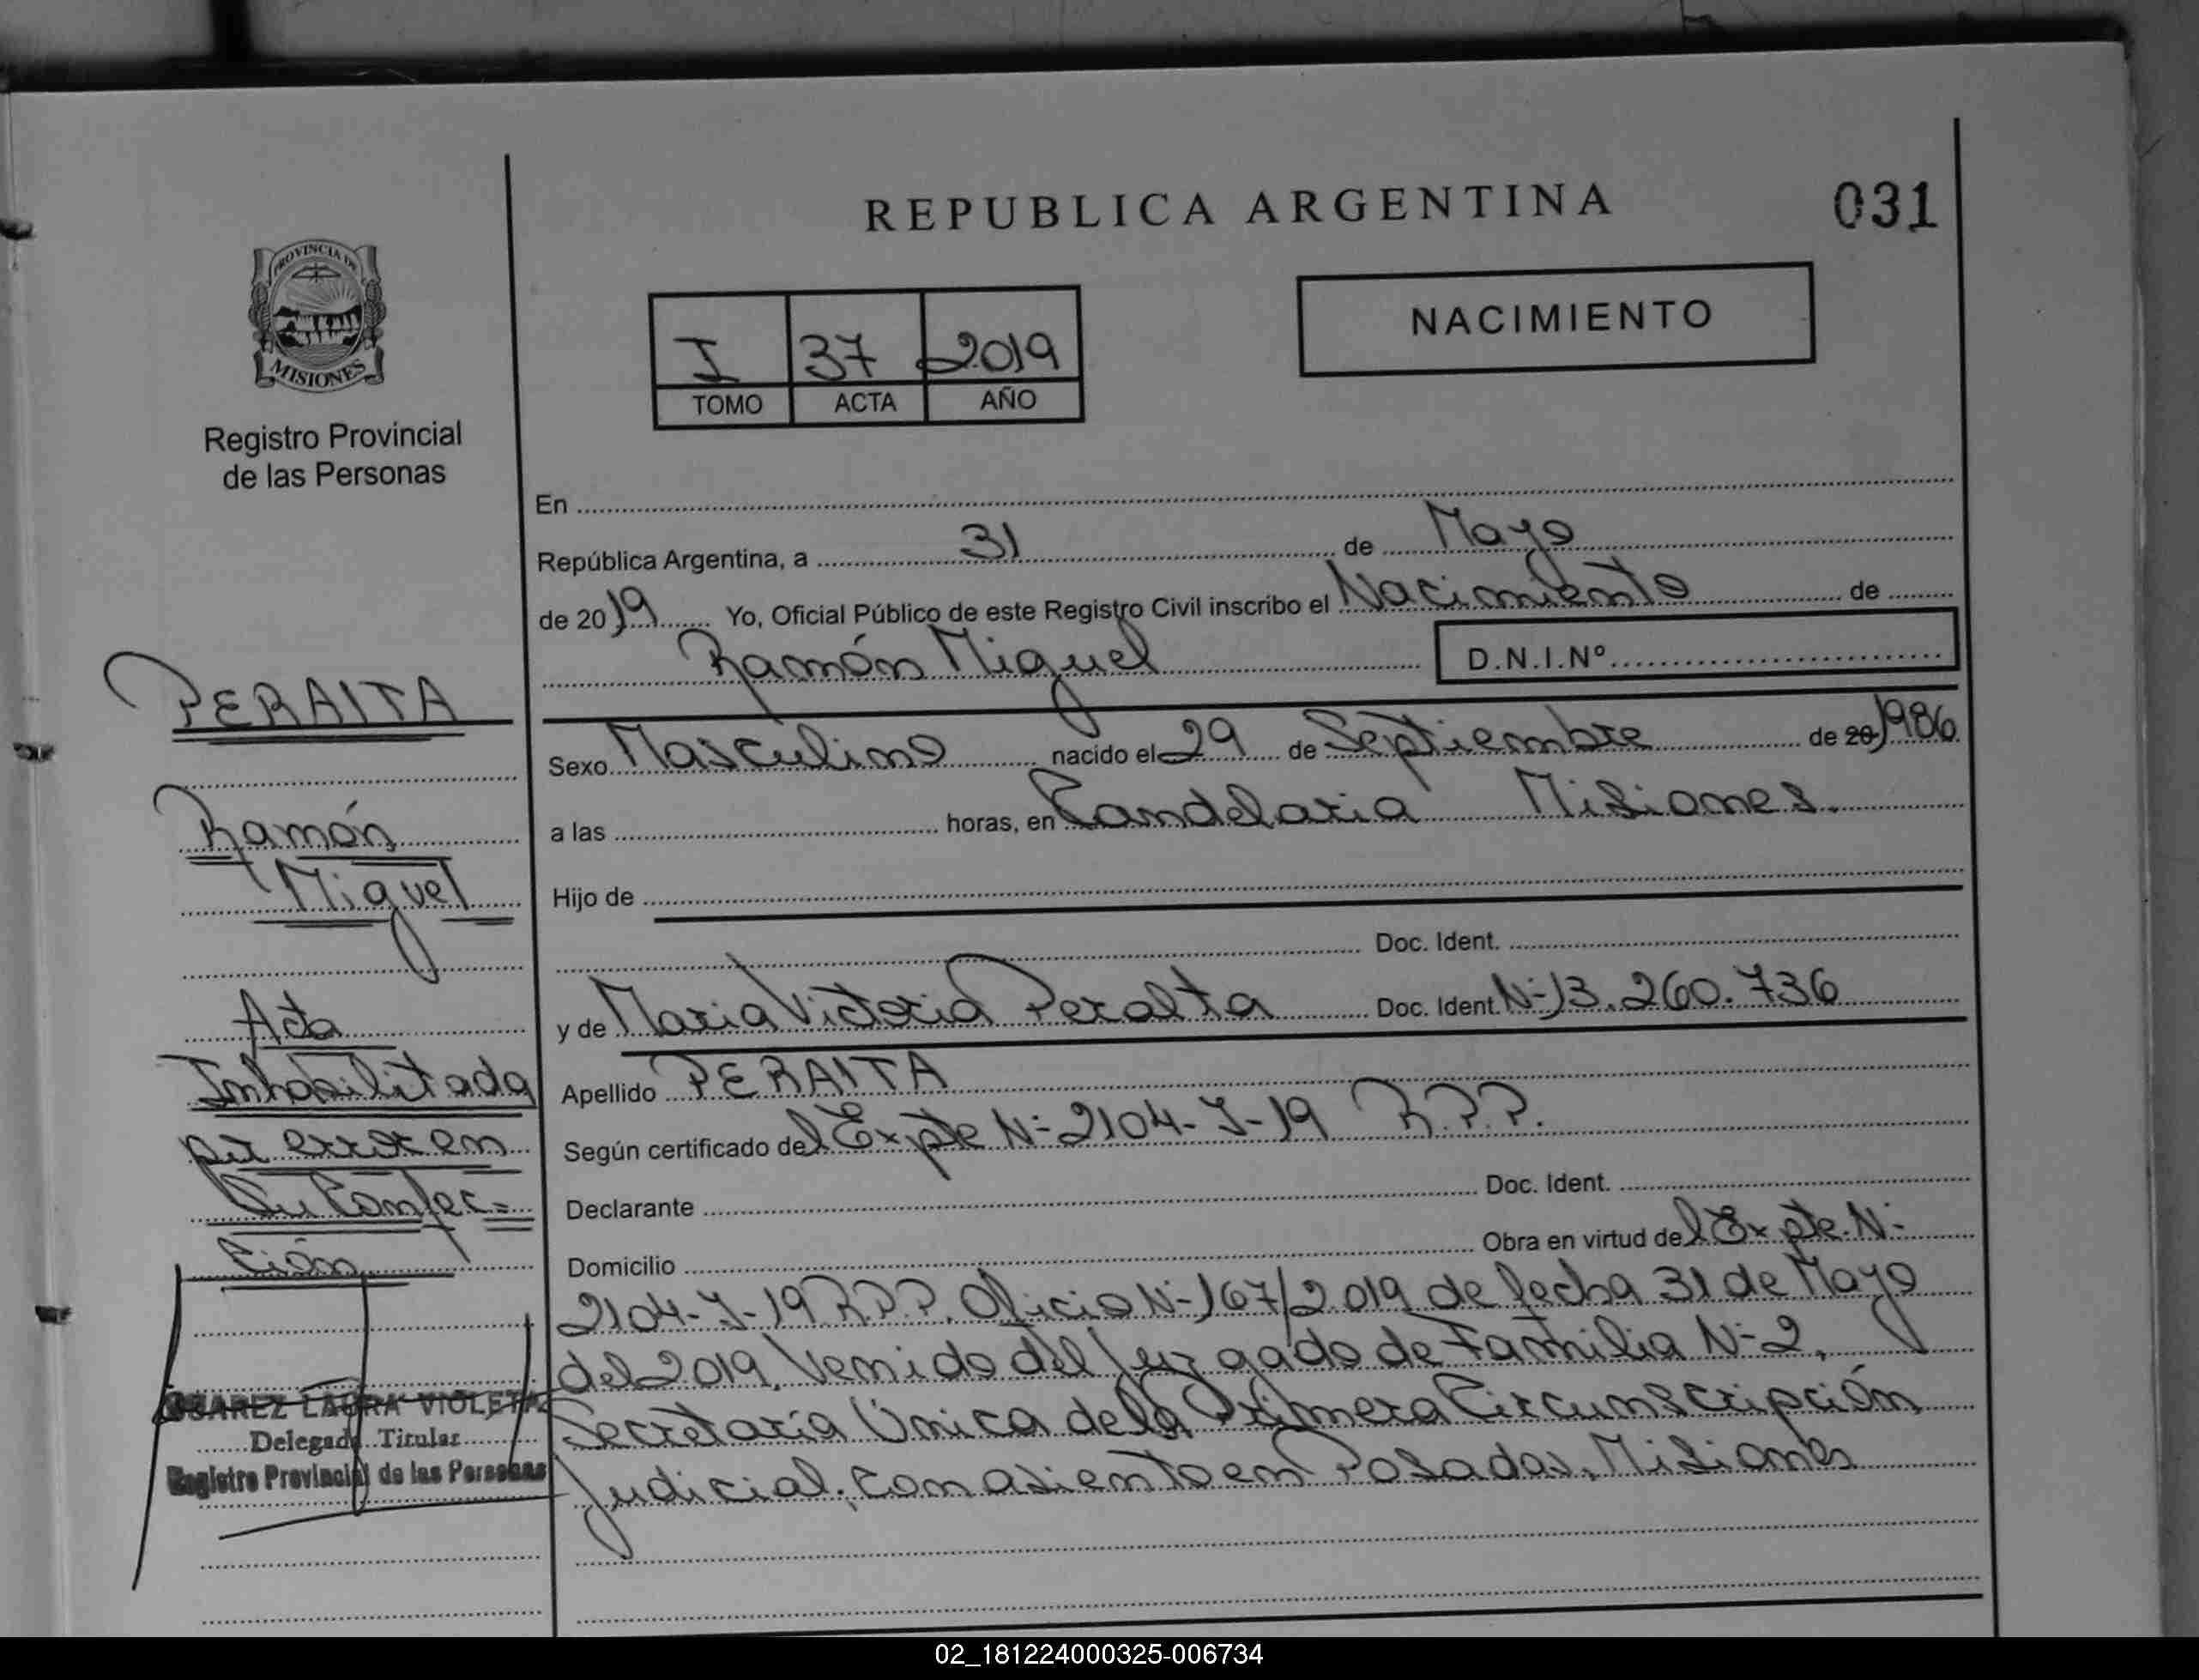 REPUBLICA ARGENTINA
031
PROVINCIA DE
MISIONES
Registro Provincial
de las Personas
I 37 2019
TOMO ACTA AÑO
NACIMIENTO
En
República Argentina, a 31 de Mayo
de 2019 Yo, Oficial Público de este Registro Civil inscribo el Nacimiento de
Ramón Miguel D.N.I.Nº
Sexo Masculino nacido el 29 de Septiembre de 20 1986
a las horas, en Candelaria Misiones.
Hijo de
Doc. Ident.
y de Maria Victoria Peralta Doc. Ident. Nº 13.260.736
Apellido PERALTA
Según certificado del Expte Nº 2104-J-19 R.P.P.
Declarante Doc. Ident.
Domicilio Obra en virtud del Expte. Nº
2104-J-19 R.P.P. Oficio Nº 167/2019 de fecha 31 de Mayo
del 2019, Venido del Juzgado de Familia Nº 2,
Secretaría Única de la Primera Circunscripción
Judicial, con asiento en Posadas, Misiones
PERALTA
Ramón
Miguel
Acta
Inhabilitada
por error en
Su Confec=
ción
SUAREZ LAURA VIOLETA
Delegada Titular
Registro Provincial de las Personas
02_181224000325-006734